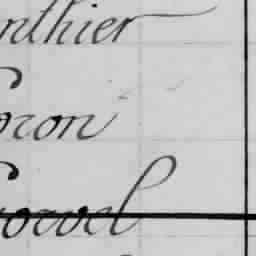 nthier
oron
orvel